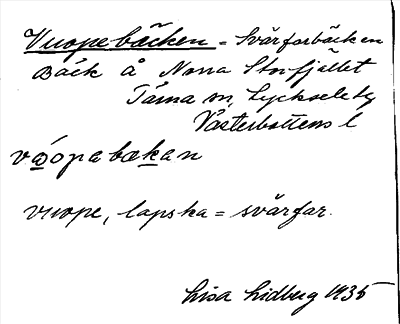 Vuopebäcken = Svärfarbäcken
Bäck å Norra Storfjället
Tärna sn, Lycksele ly
Västerbottens l
våopabækan
vuope, lapska = svärfar.
Lisa Lidberg 1935